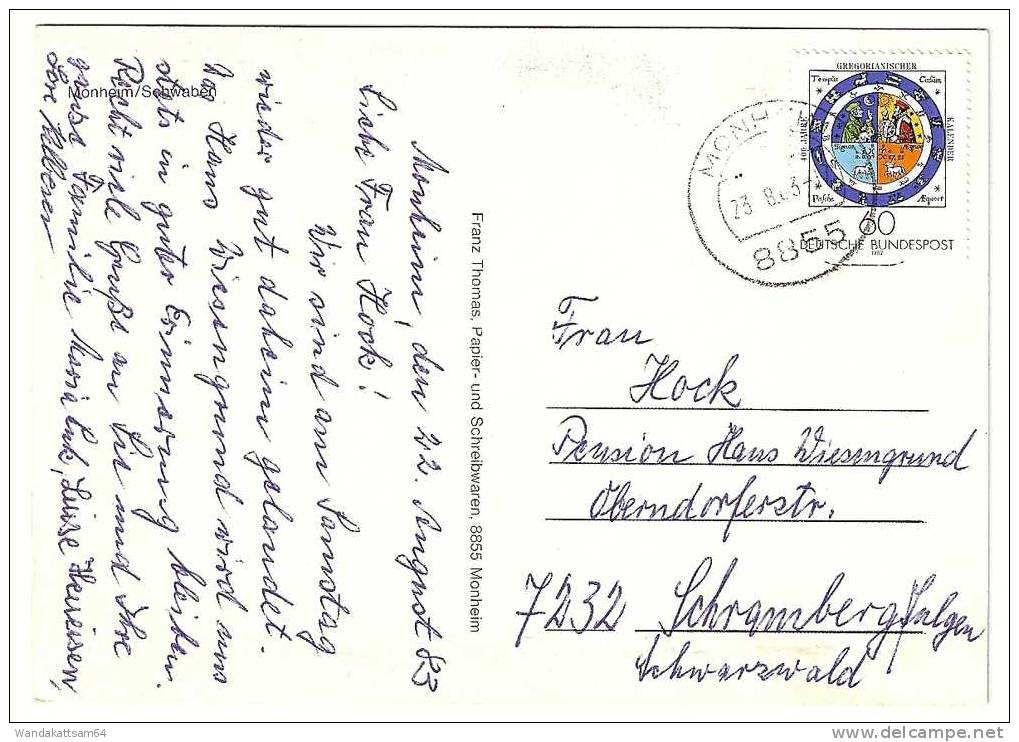 Monheim/Schwaben
Monheim, den 22. August 83
Liebe Frau Hock!
Wir sind am Samstag
wieder gut daheim gelandet.
Das Haus Wiesengrund wird uns
stets in guter Erinnerung bleiben.
Recht viele Grüße an Sie und Ihre
ganze Familie Maria
Luise
Franz Thomas, Papier- und Schreibwaren, 8855 Monheim
GREGORIANISCHER
KALENDER
400 JAHRE
Tempus
Casum
Signor
Pascha
Æquor
60
DEUTSCHE BUNDESPOST
1982
MONHEIM
23.8.83
8855
Frau
Hock
Pension Haus Wiesengrund
Oberndorferstr.
7232 Schramberg/Sulgen
Schwarzwald
Wandakattsam64
delcampe.net